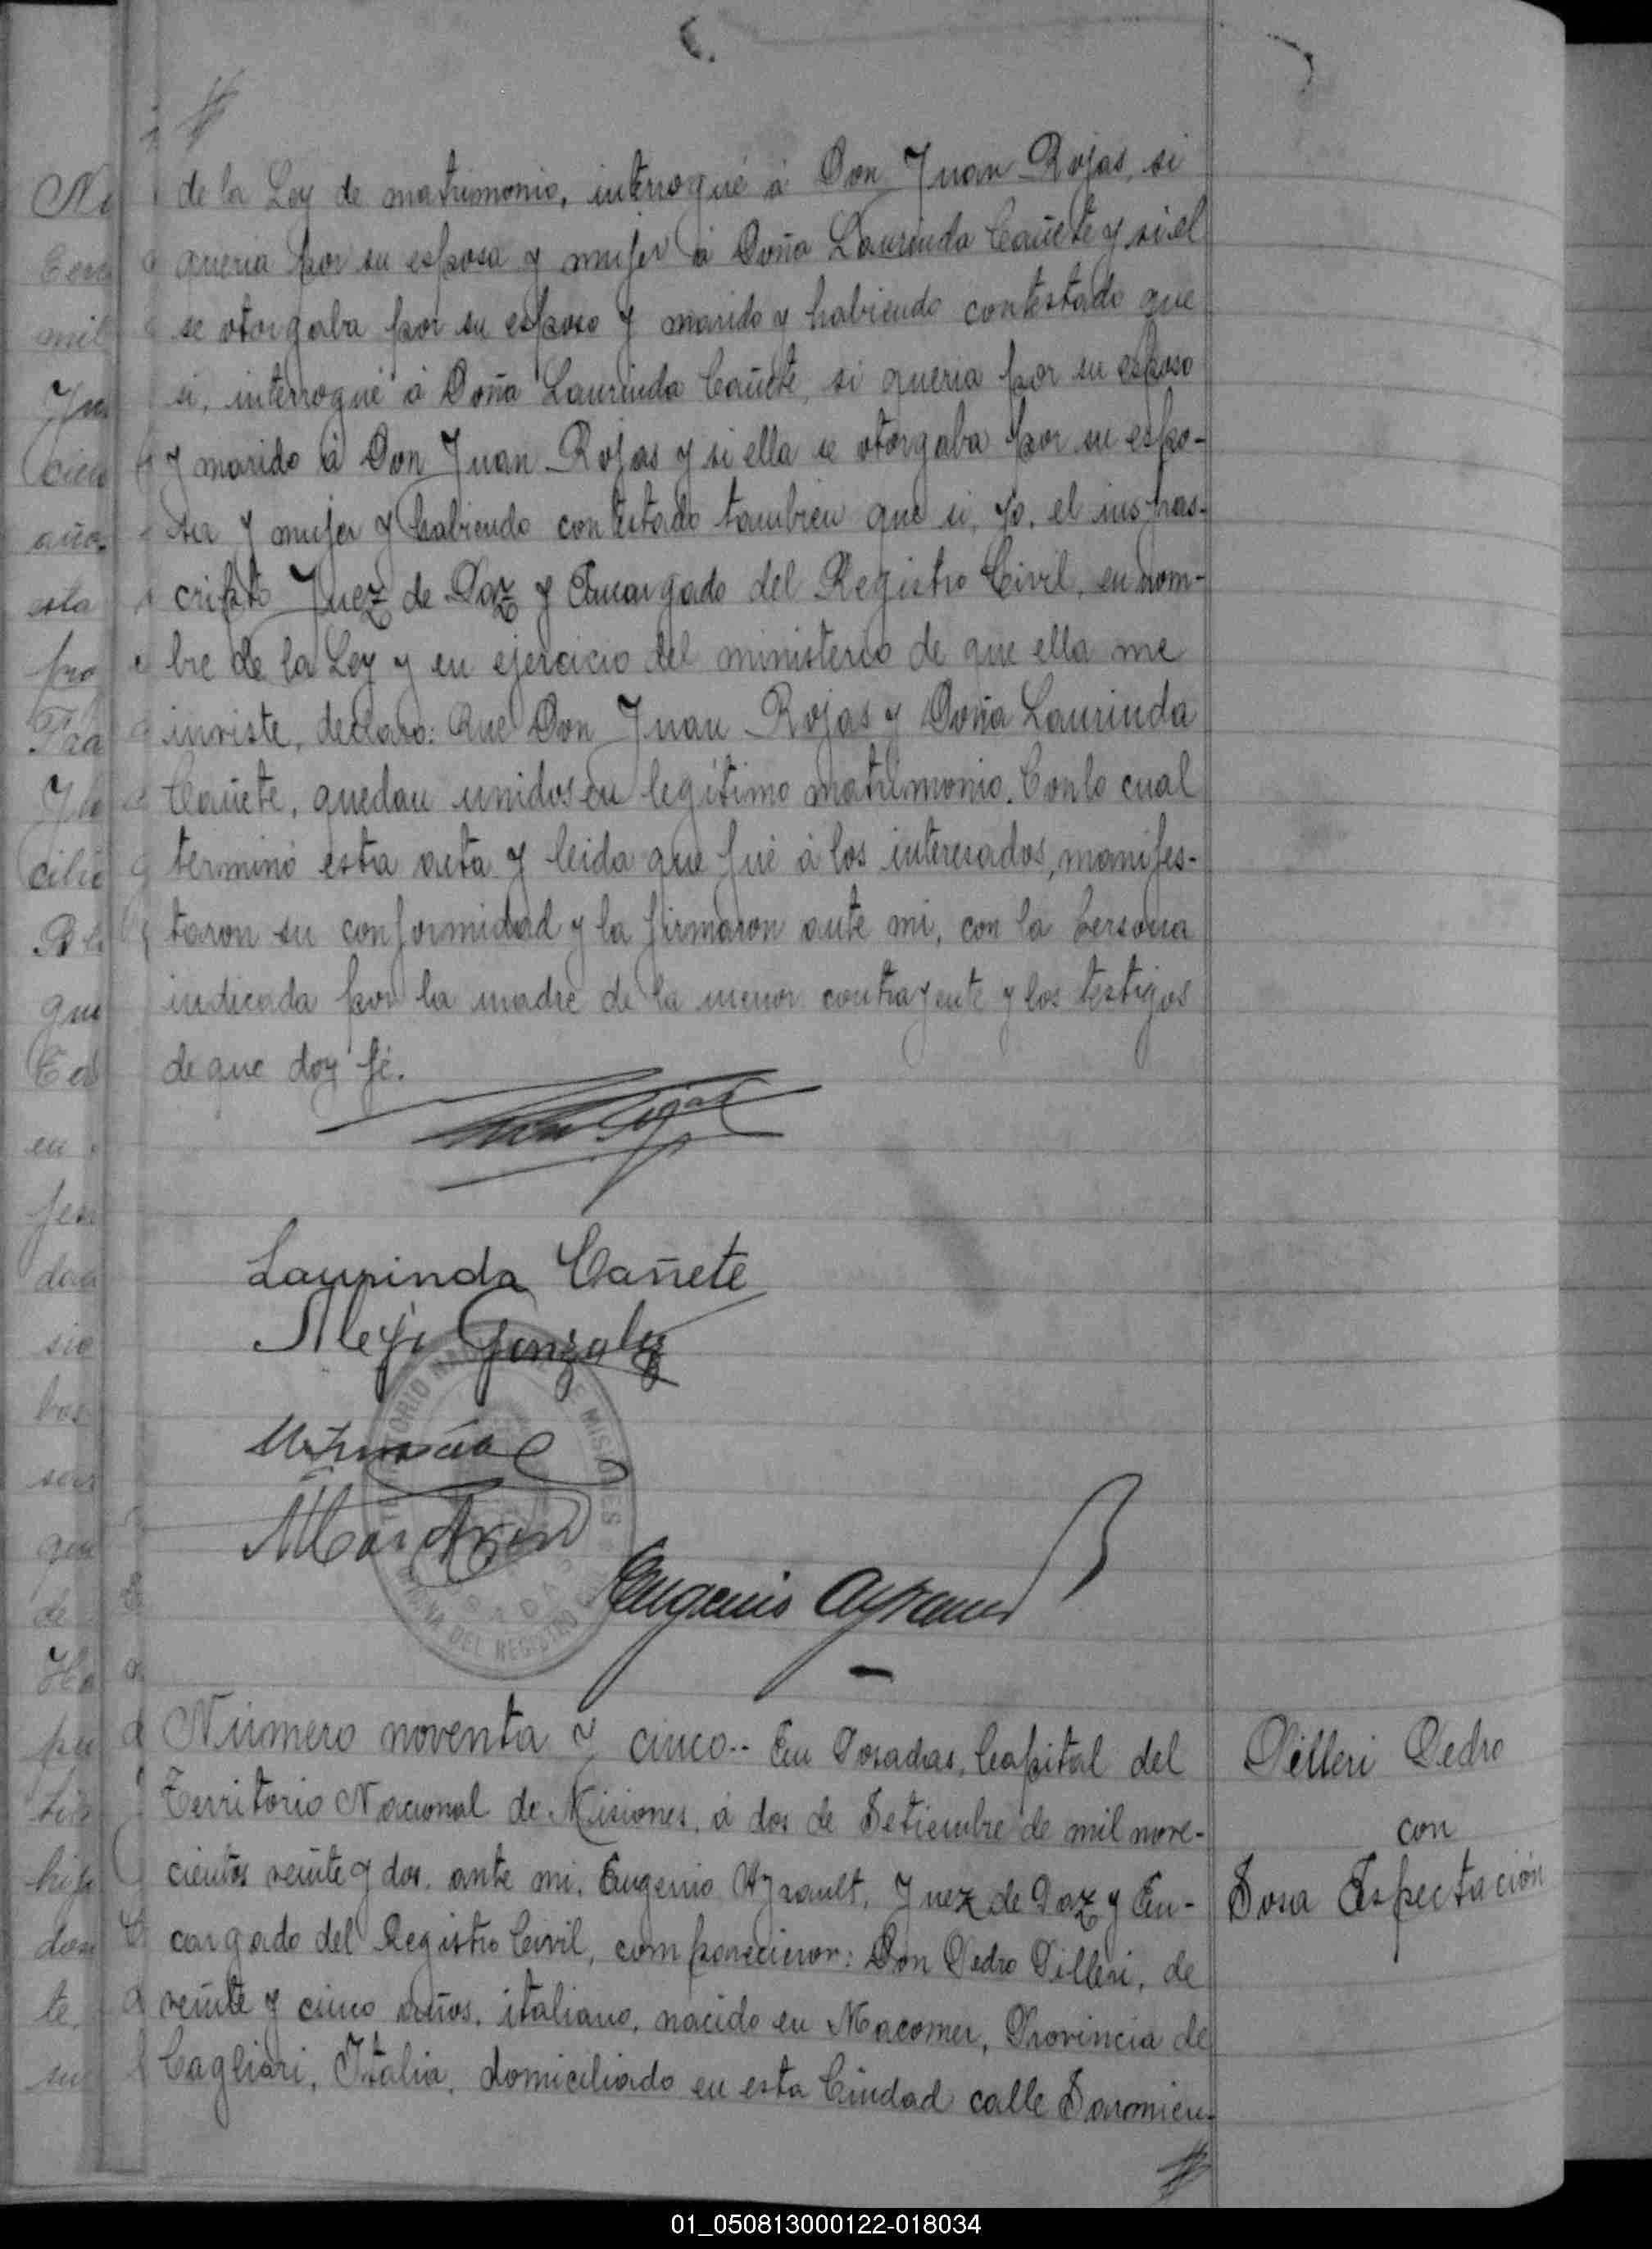 de la Ley de matrimonio, interrogué á Don Juan Rojas, si
queria por su esposa y mujer á Doña Laurinda Cañete y si el
se otorgaba por su esposo y marido y habiendo contestado que
si, interrogué á Doña Laurinda Cañete, si queria por su esposo
y marido á Don Juan Rojas y si ella se otorgaba por su espo-
sa y mujer y habiendo contestado tambien que si, yo, el infras-
cripto Juez de Paz y Encargado del Registro Civil, en nom-
bre de la Ley y en ejercicio del ministerio de que ella me
inviste, declaro: Que Don Juan Rojas y Doña Laurinda
Cañete, quedan unidos en legítimo matrimonio. Con lo cual
terminó esta acta y leida que fué á los interesados, manifes-
taron su conformidad y la firmaron ante mi, con la persona
indicada por la madre de la menor contrayente y los testigos
de que doy fé.
Juan Rojas
Laurinda Cañete
Alejo Gonzalez
TERRITORIO NACIONAL DE MISIONES
POSADAS
OFICINA DEL REGISTRO CIVIL
Eugenio Ayrault
Número noventa y cinco-- En Posadas, Capital del
Territorio Nacional de Misiones, á dos de Setiembre de mil nove-
cientos veinte y dos, ante mi, Eugenio Ayrault, Juez de Paz y En-
cargado del Registro Civil, comparecieron: Don Pedro Pilleri, de
veinte y cinco años, italiano, nacido en Macomer, Provincia de
Cagliari, Italia, domiciliado en esta Ciudad calle Sarmien-
Pilleri Pedro
con
Sosa Espectación
01_050813000122-018034